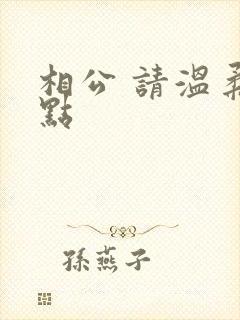 相公 請溫柔
點
孫燕子